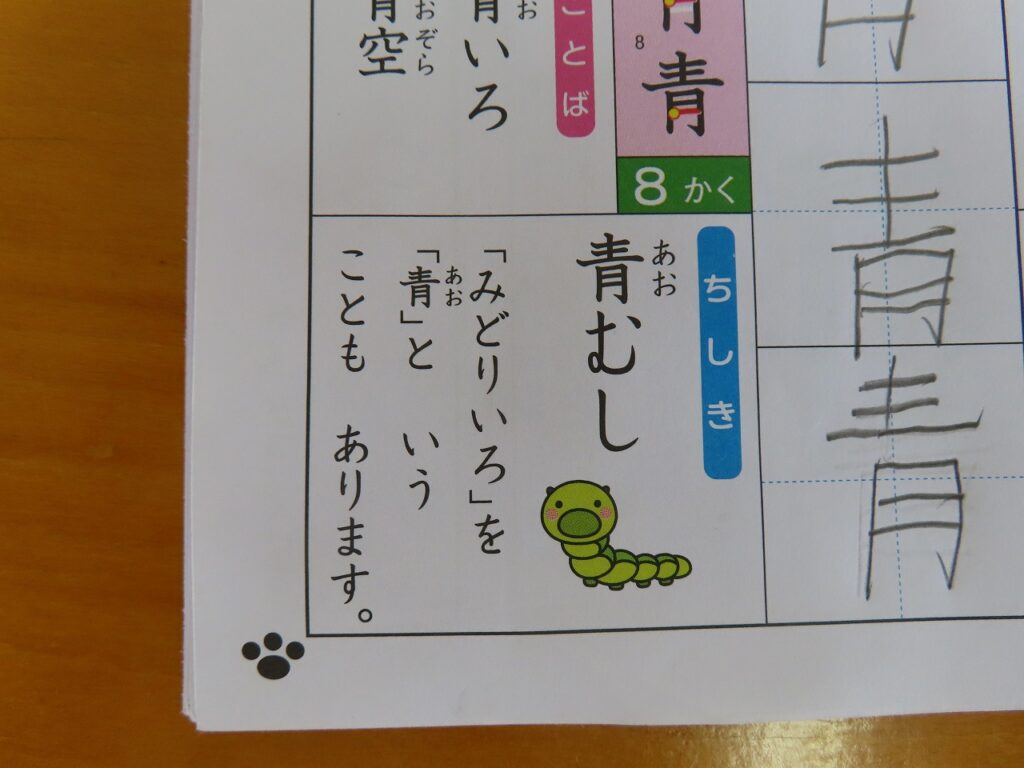 青
青
8
青
8かく
ことば
おお
青いろ
おぞら
青空
ちしき
あお
青むし
「みどりいろ」を
あお
「青」と いう
ことも あります。
青
青